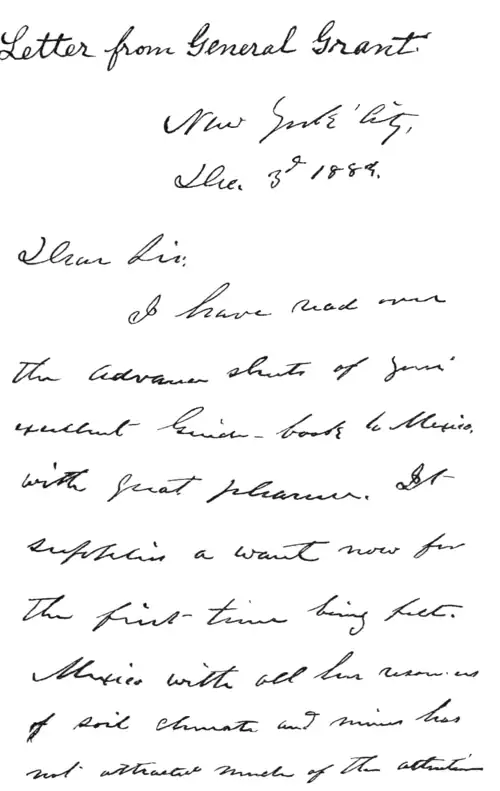 Letter from General Grant.
New York City,
Dec. 3d 1883.
Dear Sir:
I have read over
the advance sheets of your
excellent Guide-book to Mexico,
with great pleasure. It
supplies a want now for
the first time being felt.
Mexico with all her resources
of soil climate and mines has
not attracted much of the attention